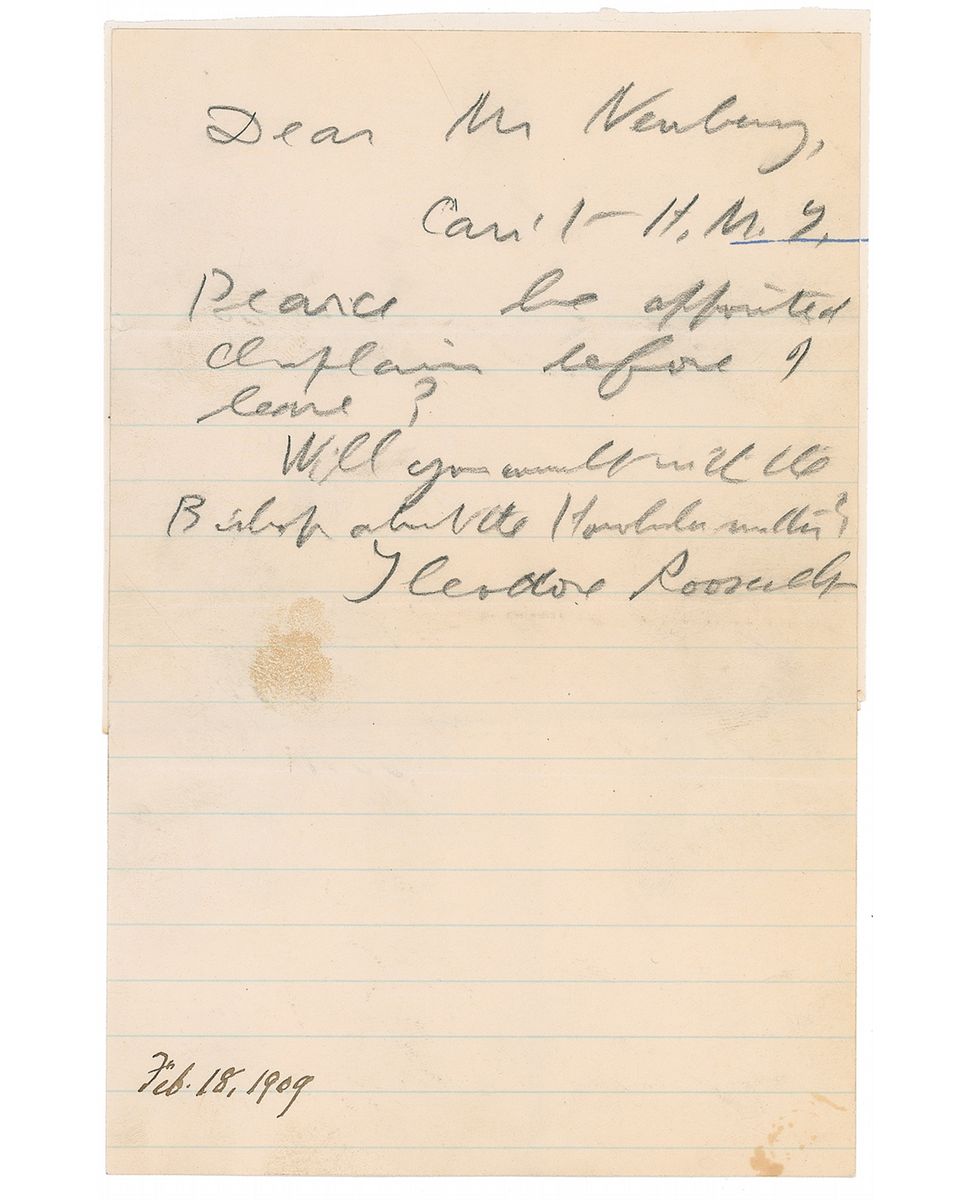 Dear Mr Newberry,
Can't H. M. G.
Pearce be appointed
chaplain before I
leave?
Will you consult with the
Bishop about the Honolulu matter?
Theodore Roosevelt
Feb. 18, 1909